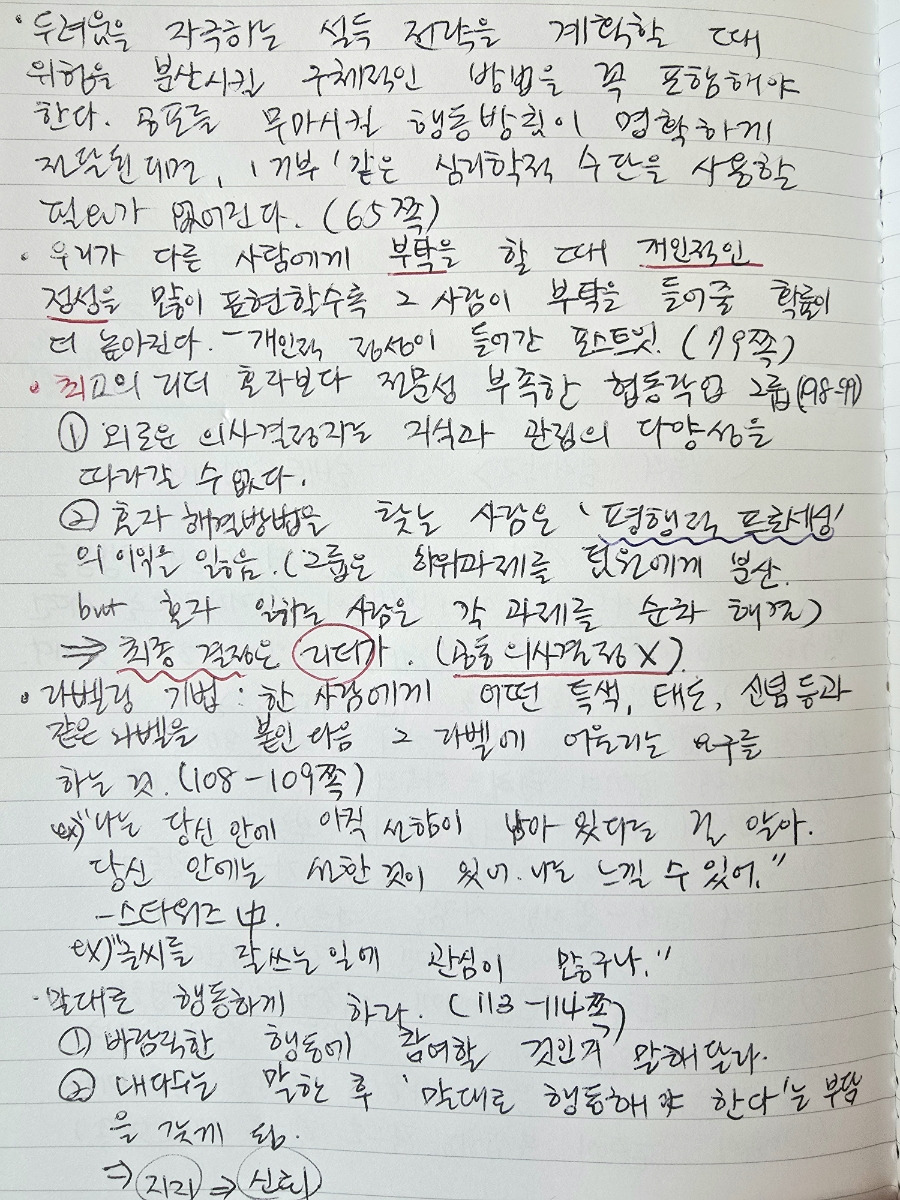 · 두려움을 자극하는 설득 전략을 계획할 때
위험을 분산시킬 구체적인 방법을 꼭 포함해야
한다. 공포를 무마시킬 행동방침이 명확하게
전달된다면, '거부' 같은 심리학적 수단을 사용할
필요가 없어진다. (65쪽)
· 우리가 다른 사람에게 부탁을 할 때 개인적인
정성을 많이 표현할수록 그 사람이 부탁을 들어줄 확률이
더 높아진다. - 개인적 정성이 들어간 포스트잇. (79쪽)
· 최고의 리더 혼자보다 전문성 부족한 협동작업 그룹 (98-99)
① 외로운 의사결정자는 지식과 관점의 다양성을
따라갈 수 없다.
② 혼자 해결방법을 찾는 사람은 '평행적 프로세싱'
의 이익을 잃음. (그룹은 하위과제를 팀원에게 분산.
but 혼자 일하는 사람은 각 과제를 순차 해결)
⇒ 최종 결정은 리더가. (공동 의사결정 X).
· 라벨링 기법 : 한 사람에게 어떤 특색, 태도, 신념 등과
같은 라벨을 붙인 다음 그 라벨에 어울리는 요구를
하는 것. (108-109쪽)
ex) "나는 당신 안에 아직 선함이 남아 있다는 걸 알아.
당신 안에는 선한 것이 있어. 나는 느낄 수 있어."
- 스타워즈 中.
ex) "글씨를 잘쓰는 일에 관심이 많구나."
· 말대로 행동하게 하라. (113-114쪽)
① 바람직한 행동에 참여할 것인지 말해달라.
② 대다수는 말한 후 '말대로 행동해야 한다'는 부담
을 갖게 됨.
⇒ 지지 ⇒